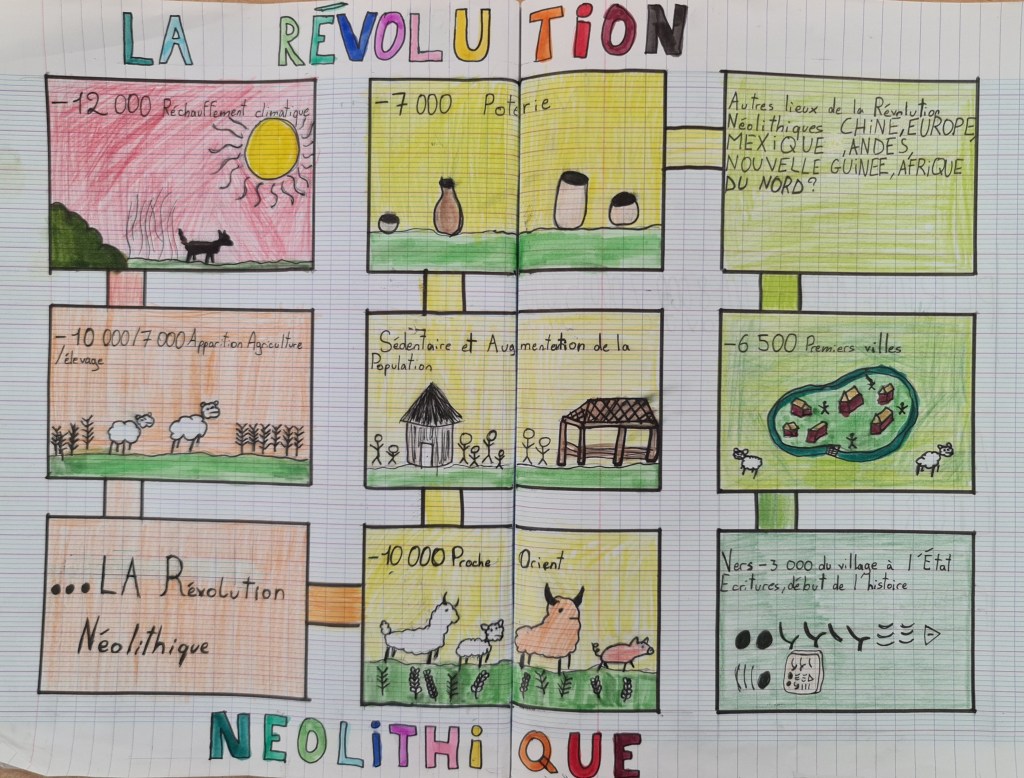 LA RÉVOLUTION
-12 000 Réchauffement climatique
-10 000/7 000 Apparition Agriculture
/élevage
...LA Révolution
Néolithique
-10 000 Proche Orient
Sédentaire et Augmentation de la
Population
-7 000 Poterie
Autres lieux de la Révolution
Néolithiques CHINE, EUROPE,
MEXIQUE, ANDES,
NOUVELLE GUINEE, AFRIQUE
DU NORD?
-6 500 Premiers villes
Vers -3 000 du village à l'État
Ecritures, début de l'histoire
NEOLITHIQUE